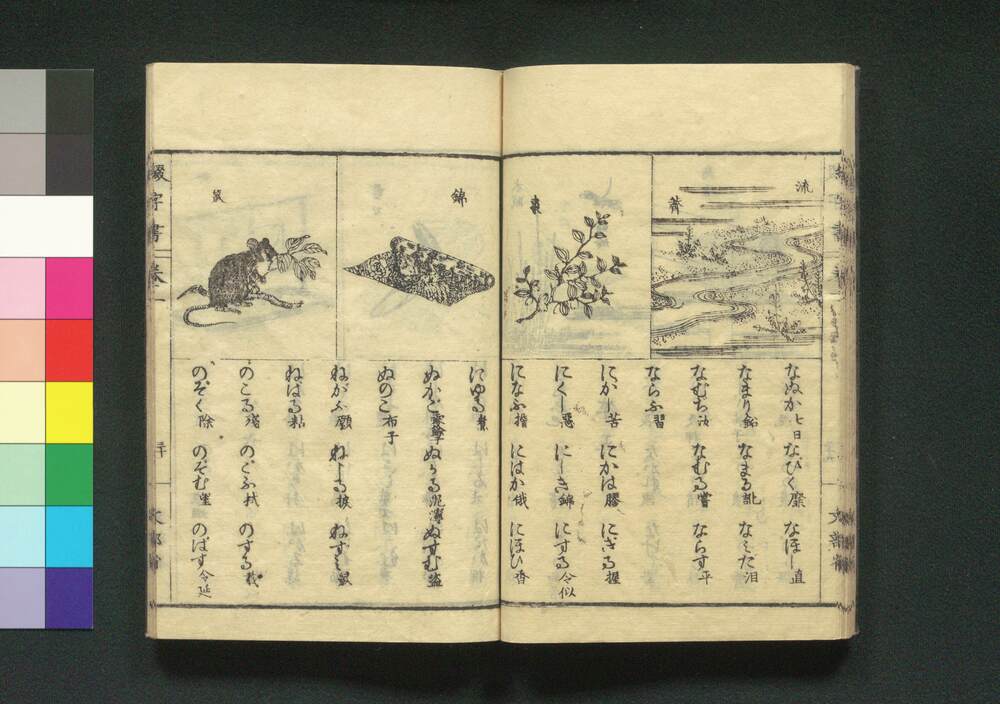 流
薺
棗
なぬか 七日 なびく 靡 なほし 直
なまり 鉛 なまる 訛 なみだ 泪
なむち 汝 なむる 嘗 ならす 平
ならふ 習
にがし 苦 にかは 膠 にぎる 握
にくし 惡 にしき 錦 にする 令似
になふ 擔 にはか 俄 にほひ 香
錦
鼠
にゆる
ぬかご ぬかる ぬすむ 盗
ぬのこ 布子
ねがふ 願 ねじる ねずみ 鼠
ねはる 粘
のこる 殘 のごふ 拭 のする 載
のぞく 除 のぞむ 望 のばす 令延
綴字書 卷一
文部省